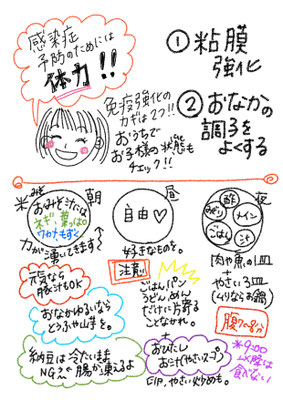 感染症
予防のためには
体力!!
①粘膜
強化
免疫強化の
カギは2つ!!
おうちで
お子様の状態も
チェック!!
②おなかの
調子を
よくする
朝
おみそ汁には
ネギ・葉っぱの
力が湧いてきます
元気なら
豚汁もOK
おなかゆるいなら
とうふや山芋を。
納豆は冷たいまま
腸が凍えるよ
昼
自由♡
好きなものを。
注意!!
ごはん/パン
うどん、めん
だけに片寄る
ことなかれ。
おひたし
お汁(やさいスープ)
やさい炒めも。
夜
酢
みどり
メイン
ごはん
汁
肉や魚の1皿
+
やさい3皿
(ムリならお鍋)
腹7〜8分
*9:00
以降は
食べない